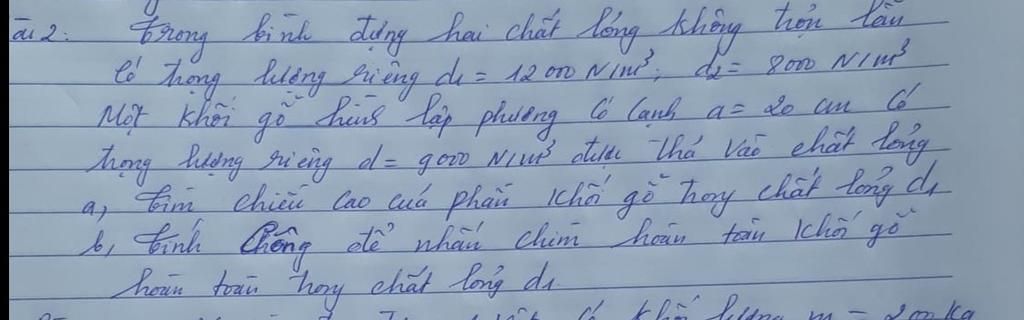 ài 2: Trong bình đựng hai chất lỏng không trộn lẫn
Có trọng lượng riêng d1 = 12000 N/m³; d2 = 8000 N/m³
Một khối gỗ hình lập phương có cạnh a = 20 cm có
trọng lượng riêng d = 9000 N/m³ được thả vào chất lỏng
a, Tìm chiều cao của phần khối gỗ trong chất lỏng d1
b, Tính Công để nhấn chìm hoàn toàn khối gỗ
hoàn toàn trong chất lỏng d1.
có khối lượng m = 200 Kg